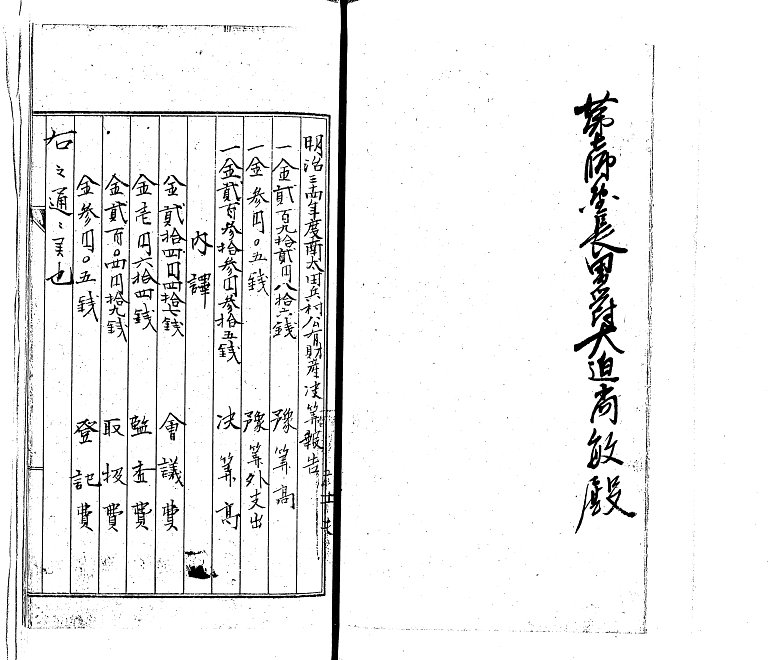 第七師団長男爵大迫尚敏殿
明治三四年度南太田兵村公有財産決算報告
一金貳百九拾貳円八拾六銭 豫算高
一金参円〇五銭 豫算外支出
一金貳百参拾参円参拾五銭 決算高
内譯
金貳拾四円四拾七銭 會議費
金壱円六拾四銭 監査費
金貳百〇四円拾九銭 取扱費
金参円〇五銭 登記費
右之通ニ候也